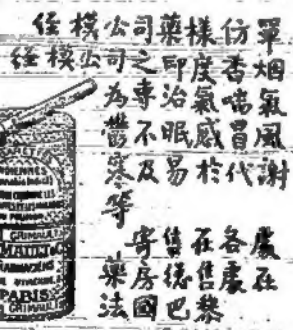 侄模公司藥樣仿單
侄模公司之印度香烟
為專治氣喘氣
鬱不眠感冒風
寒及易於代謝
等
寄售在各處
藥房總售處在
法國巴黎
GRIMAULT
PARIS
GRIMAULT